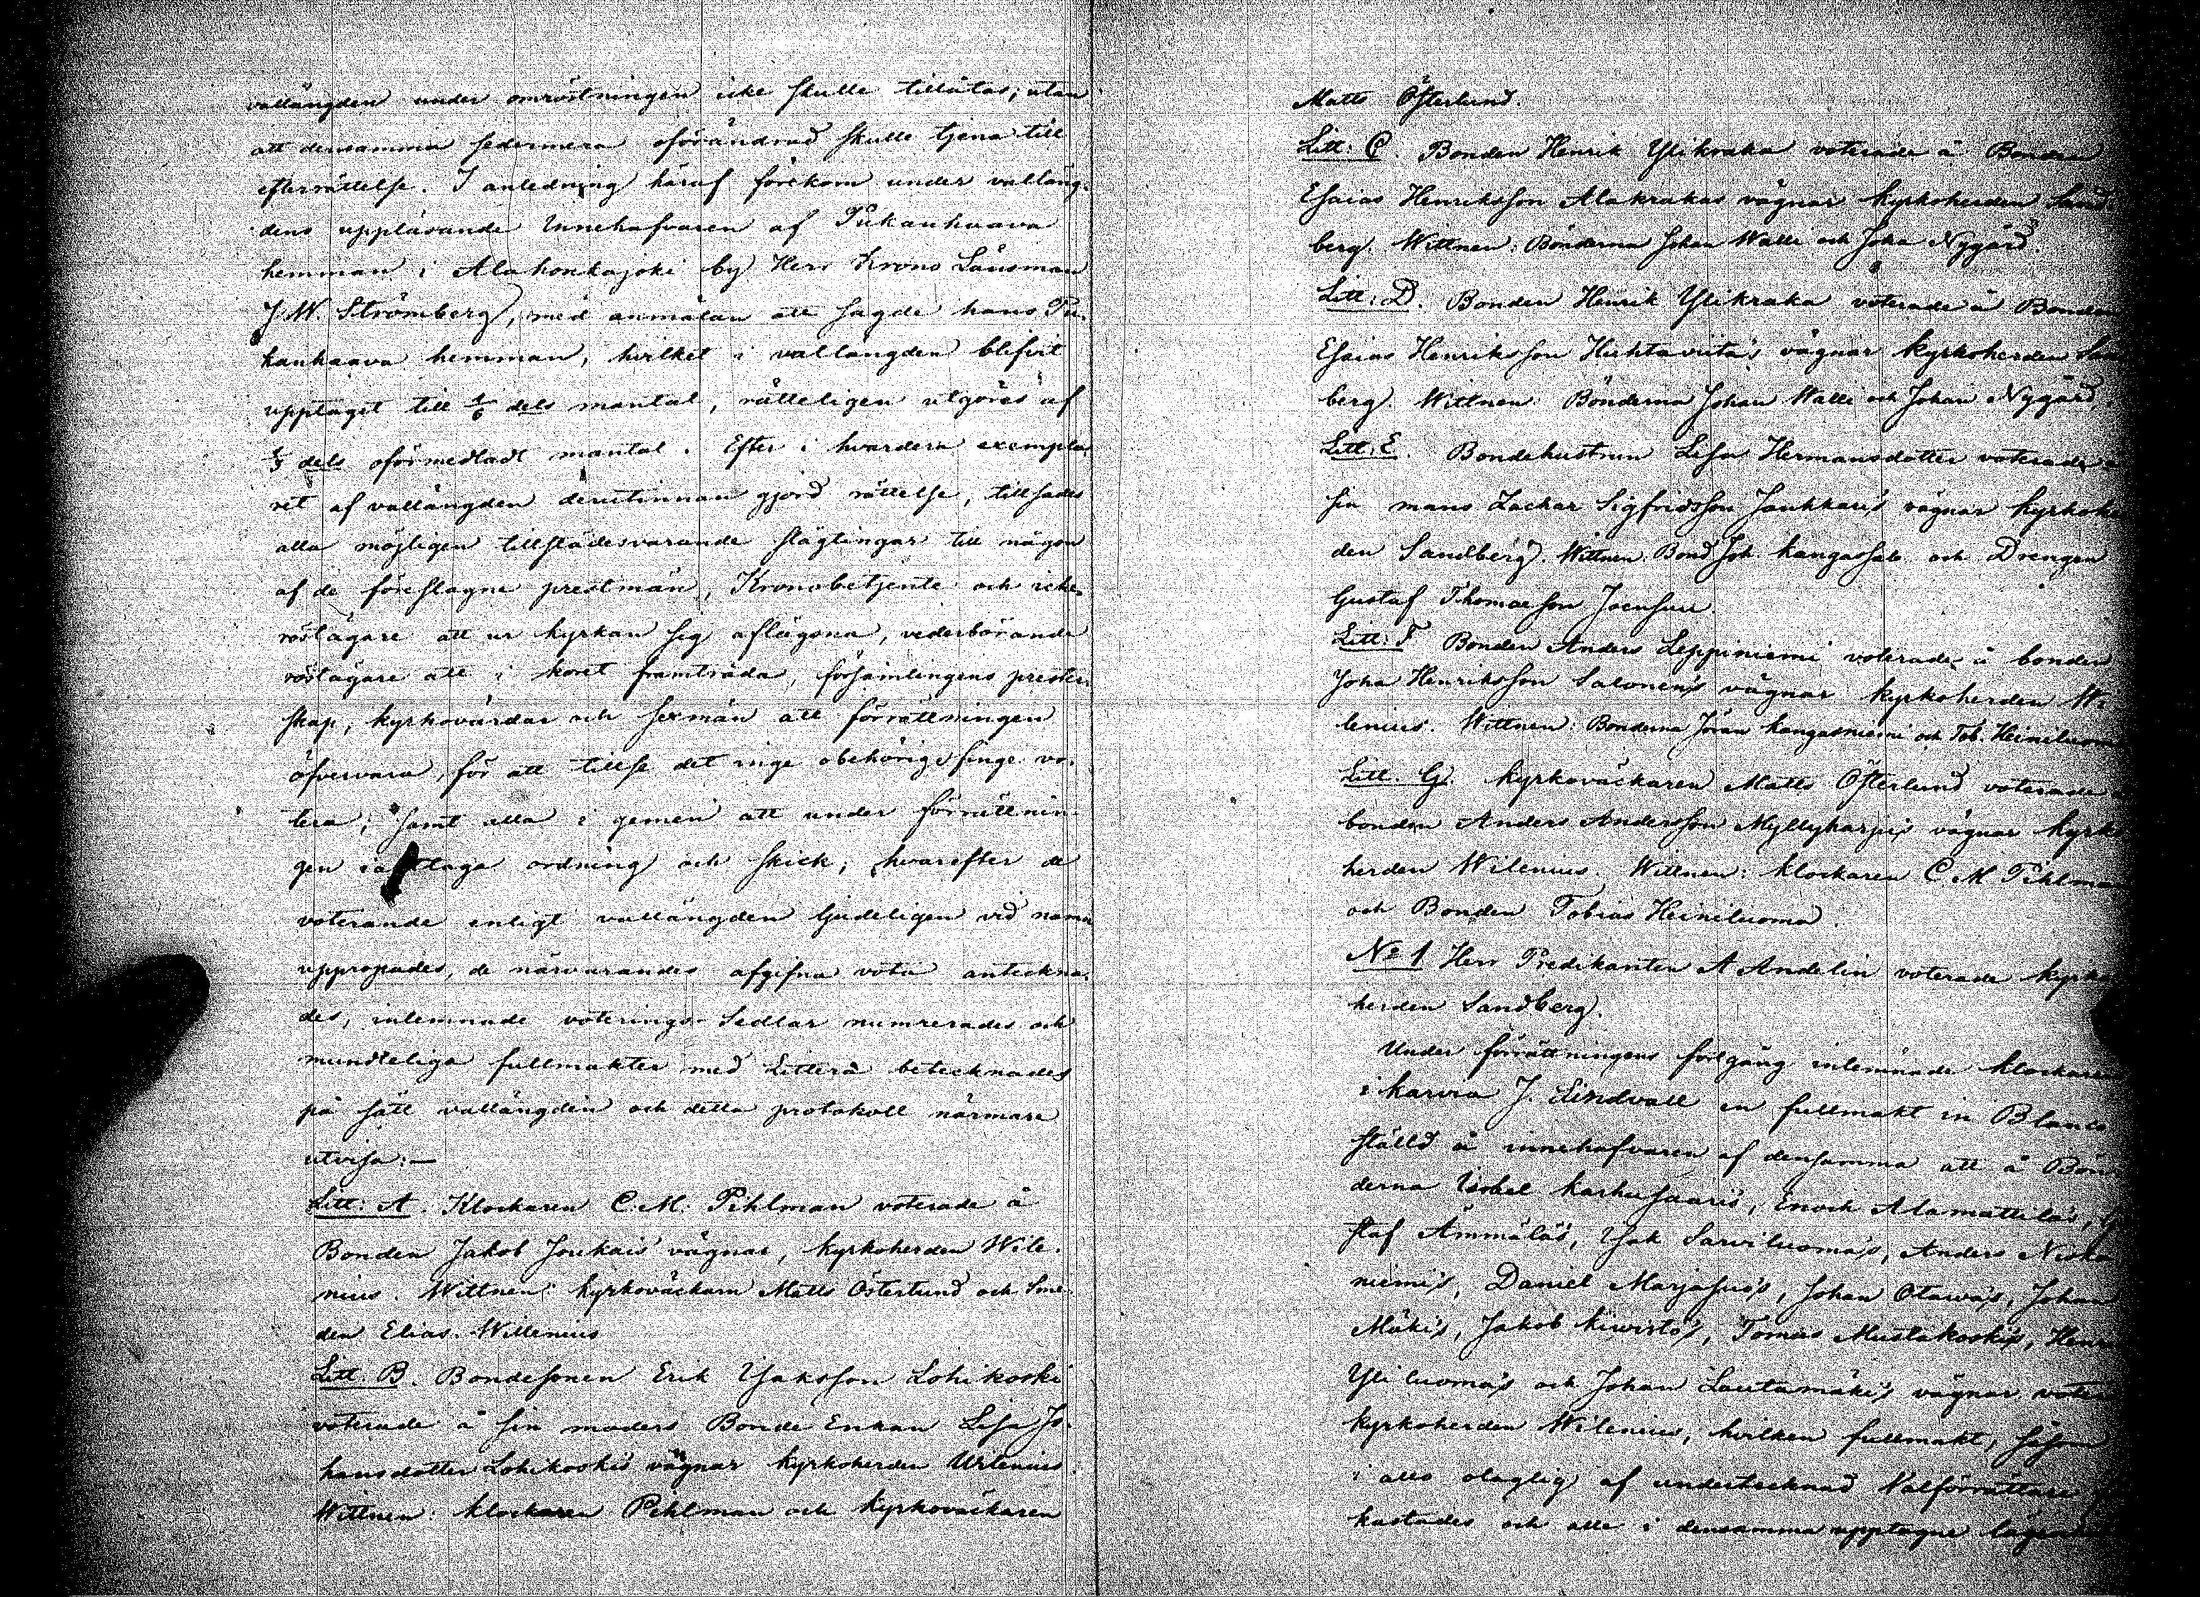 vallängden under omröstningen icke skulle tillåtas; utan
att densamma sedermera oförändrad skulle tjena till
efterrättelse. I anledning häraf förekom under valläng-
dens uppläsande Innehafvaren af Pukanhaava
hemman i Alahonkajoki by Herr Krono Länsman
J. W. Strömberg, med anmälan att sagde hans Pu-
kanhaava hemman, hvilket i vallängden blifvit
upptaget till 1/6 dels mantal, rätteligen utgöres af
1/3 dels oförmedladt mantal. Efter i hvardera exempla
ret af vallängden derutinnan gjord rättelse, tillsades
alla möjligen tillstädesvarande slägtingar till någon
af de föreslagne prestmän, Kronobetjente och icke
röstägare att ur kyrkan sig aflägsna, vederbörande
röstägare att i koret framträda, församlingens prester-
skap, kyrkovärdar och sexmän att förrättningen
öfvervara, för att tillse det inge obehörige finge vo-
tera; samt alla i gemen att under förrättnin-
gen iakttaga ordning och skick; hvarefter de
voterande enligt vallängden ljudeligen vid namn
uppropades, de närvarandes afgifna vota anteckna-
des, inlemnade voterings-Sedlar numrerades och
mundteliga fullmakter med Littera betecknades
på sätt vallängden och detta protokoll närmare
utvisa:—
Litt: A. Klockaren C. M. Pihlman voterade å
Bonden Jakob Joukais vägnar, kyrkoherden Wile-
nius. Wittnen: kyrkoväckarn Matts Österlund och Sme-
den Elias Willenius
Litt. B. Bondesonen Erik Isaksson Lohikoski
voterade å sin moders Bonde Enkan Lisa Jo-
hansdotter Lohikoskis vägnar kyrkoherden Wilenius.
Wittnen: klockaren Pihlman och kyrkoväckaren
Matts Österlund.
Litt: C. Bonden Henrik Ylikraka voterade å Bonden
Esaias Henriksson Alakrakas vägnar kyrkoherden Sand-
berg. Wittnen: Bönderna Johan Walli och Joha Nygård.
Litt: D. Bonden Henrik Ylikraka voterade å Bonden
Esaias Henriksson Huhtaviita's vägnar kyrkoherden San
berg. Wittnen Bönderna Johan Walli och Johan Nygård.
Litt: E. Bondehustrun Lisa Hermansdotter voterade å
sin mans Zachar. Sigfridsson Jaukkari's vägnar kyrkohe
den Sandberg. Wittnen. Bond Joh Kangassalo och Drengen
Gustaf Thomasson Joensuu
Litt: F Bonden Anders Leppiniemi voterade å bonden
Joha Henriksson Salonen's vägnar kyrkoherden Wi-
lenius. Wittnen: Bönderna Jöran Kangasniemi och Tob. Heiniluoma
Litt. G. kyrkoväckaren Matts Österlund voterade å
bonden Anders Andersson Myllykarjus vägnar kyrko
herden Wilenius. Wittnen: klockaren C M Pihlman
och Bonden Tobias Heiniluoma.
No 1 Herr Predikanten A Andelin voterade kyrko
herden Sandberg.
Under förrättningens fortgång inlemnade klockaren
i Karvia J. Lindvall en fullmakt in Blanco
ställd å innehafvaren af densamma att å Bön
derna Isakel Karhusaaris, Enoch Alamattilas,
staf Ämmäläs, Isak Sarviluomas, Anders Niska
niemis, Daniel Marjasuos, Johan Otawas, Johan
Mäkis, Jakob Kiwistös, Tomas Mustakoskis, Henri
Yliluomas och Johan Lautamäkis vägnar voter
kyrkoherden Wilenius, hvilken fullmakt, såsom
i allo olaglig af undertecknad Valförrättare
kastades och alle i densamma upptagne